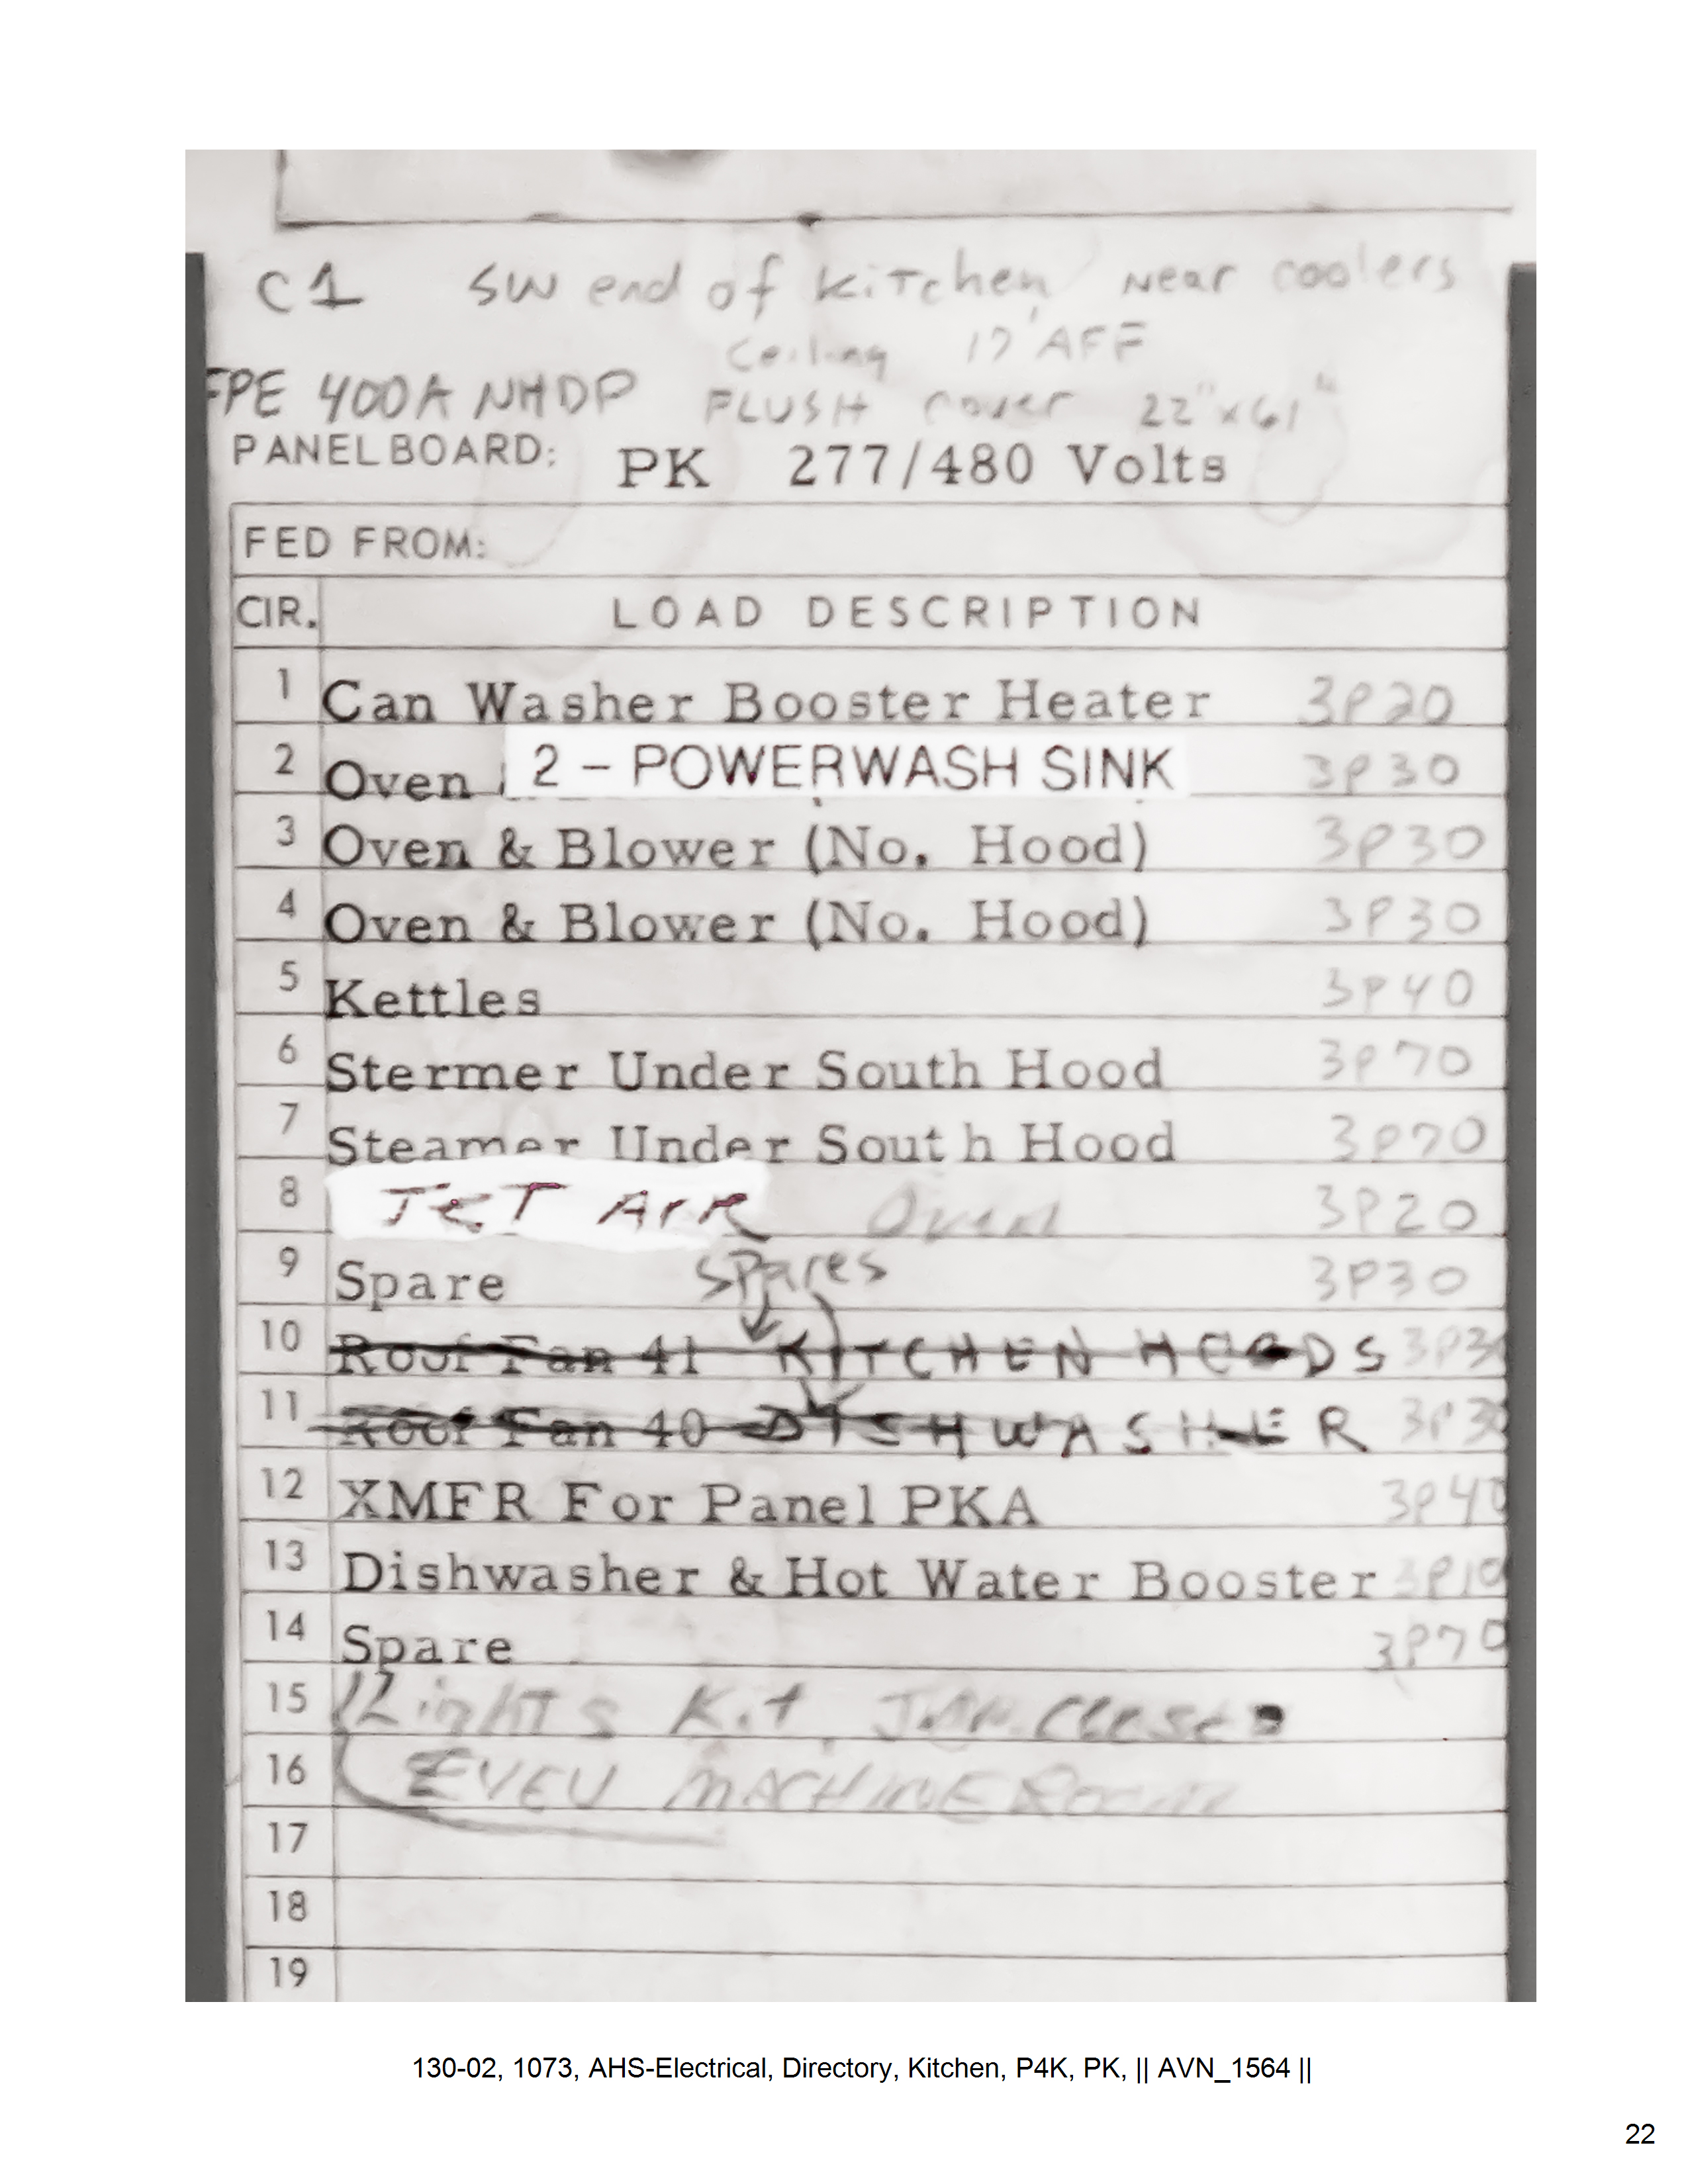 C1 SW end of KiTchen Near coolers
Ceiling 17' AFF
FPE 400A NHDP FLUSH cover 22"x61"
PANELBOARD: PK 277/480 Volts
FED FROM:
CIR. LOAD DESCRIPTION
1 Can Washer Booster Heater 3P20
2 Oven 2 - POWERWASH SINK 3P30
3 Oven & Blower (No. Hood) 3P30
4 Oven & Blower (No. Hood) 3P30
5 Kettles 3P40
6 Stermer Under South Hood 3P70
7 Steamer Under South Hood 3P70
8 JET AIR Oven 3P20
9 Spare SPares 3P30
10 Roof Fan 41 KITCHEN HOODS 3P30
11 Roof Fan 40 DISHWASHER 3P30
12 XMFR For Panel PKA 3P40
13 Dishwasher & Hot Water Booster
14 Spare 3P70
15 LighTs Kit JAN. Closet
16 MACHINE Room
17
18
19
130-02, 1073, AHS-Electrical, Directory, Kitchen, P4K, PK, || AVN_1564 ||
22